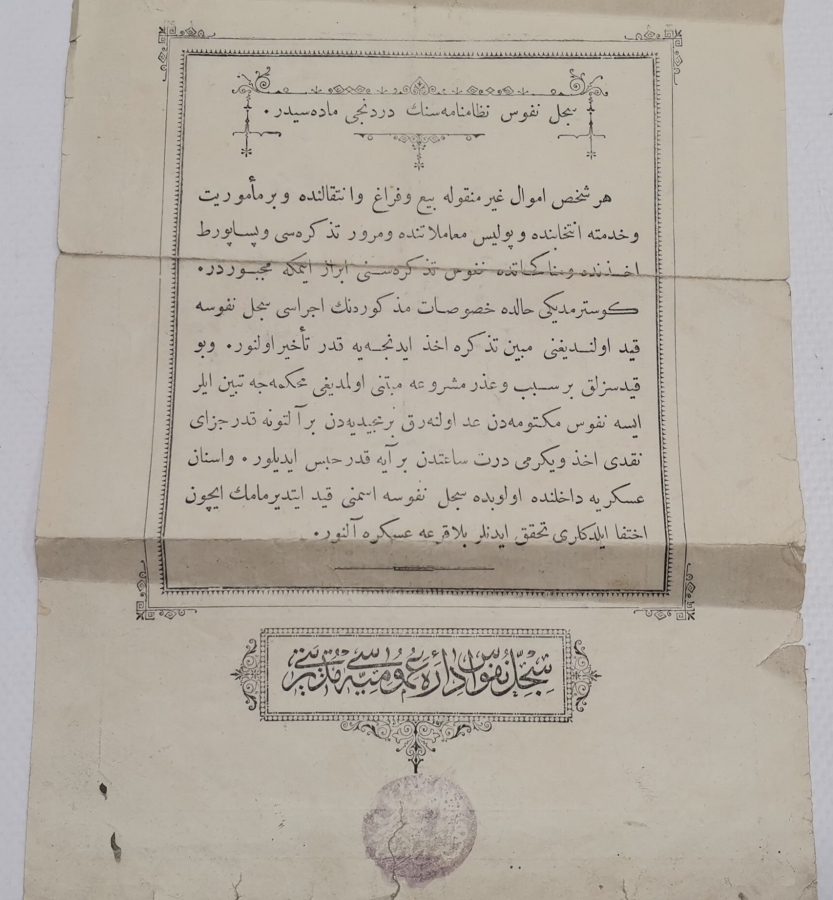 سجل نفوس نظامنامه‌سنك دردنجی ماده‌سیدر.
هر شخص اموال غیر منقوله بیع وفراغ وانتقالنده وبر مأموریت
وخدمته انتخابنده وپولیس معاملاتنده ومرور تذكره‌سی وپساپورط
اخذنده ومناكحاتده نفوس تذكره‌سنی ابراز ایتمكه مجبوردر.
كوسترمدیكی حالده خصوصات مذكوره‌نك اجراسی سجل نفوسه
قید اولندیغنی مبین تذكره اخذ ایدنجه‌یه قدر تأخیر اولنور. وبو
قیدسزلق بر سبب وعذر مشروعه مبتنی اولمدیغی محكمه‌جه تبین ایلر
ایسه نفوس مكتومه‌دن عد اولنه‌رق بر مجیدیه‌دن بر آلتونه قدر جزای
نقدی اخذ ویكرمی درت ساعتدن بر آیه قدر حبس ایدیلور. واسنان
عسكریه داخلنده اولوبده سجل نفوسه اسمنی قید ایتدیرمامك ایچون
اختفا ایلدكاری تحقق ایدنلر بلاقرعه عسكره آلنور.
سِجِلِّ نفوس اداره عمومیه‌سی مدیریتی